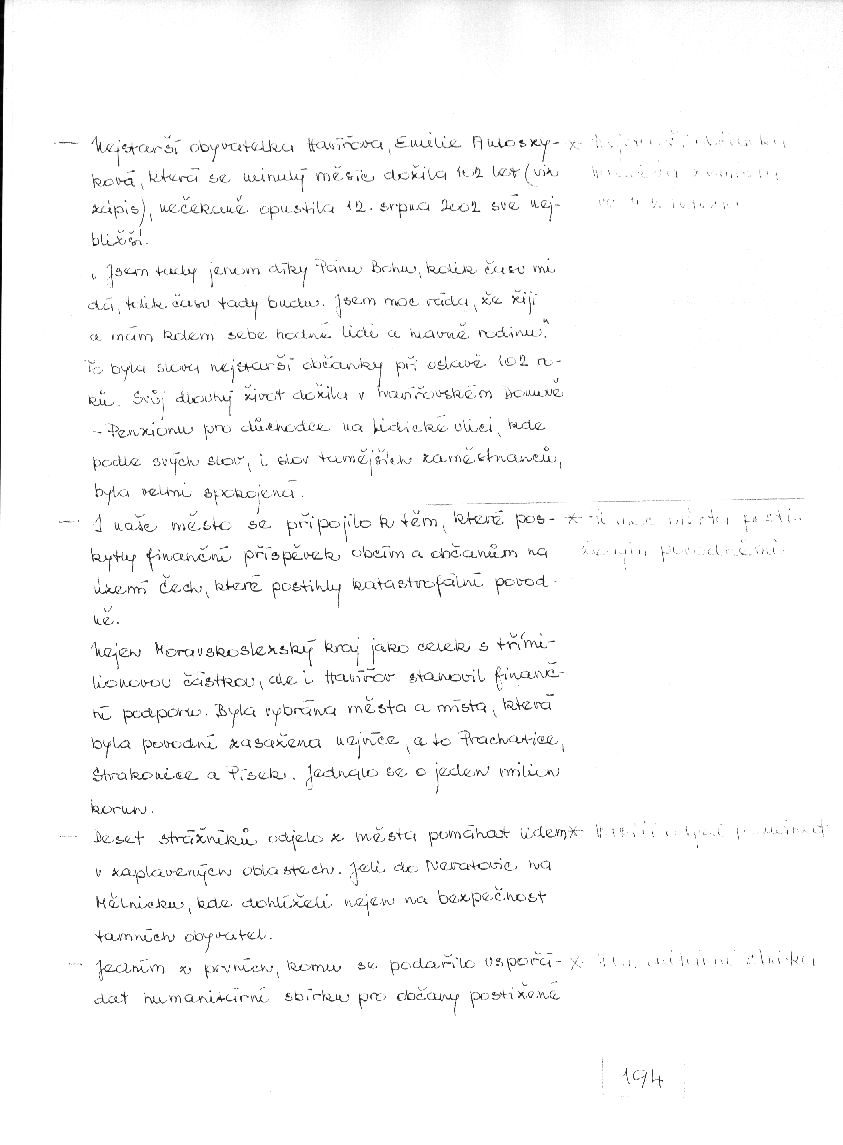 — Nejstarší obyvatelka Havířova, Emilie
ková, která se minulý měsíc dožila 102 let (viz
zápis), nečekaně opustila 12. srpna 2002 své nej-
bližší.
„Jsem tady jenom díky Pánu Bohu, kolik času mi
dá, tolik času tady budu. Jsem moc ráda, že žiji
a mám kolem sebe hodně lidí a hlavně rodinu."
To byla slova nejstarší občanky při oslavě 102 ro-
ků. Svůj dlouhý život dožila v havířovském Domově
- Penziónu pro důchodce na Lidické ulici, kde
podle svých slov, i slov tamějších zaměstnanců,
byla velmi spokojená.
— I naše město se připojilo k těm, které pos-
kytly finanční příspěvek obcím a občanům na
území Čech, které postihly katastrofální povod-
ně.
Nejen Moravskoslezský kraj jako celek s třími-
lionovou částkou, ale i Havířov stanovil finanč-
ní podporu. Byla vybrána města a místa, která
byla povodní zasažena nejvíce, a to Prachatice,
Strakonice a Písek. Jednalo se o jeden milion
korun.
— Deset strážníků odjelo z města pomáhat lidem
v zaplavených oblastech. Jeli do Neratovic na
Mělnicku, kde dohlíželi nejen na bezpečnost
tamních obyvatel.
— Jedním z prvních, komu se podařilo uspořá-
dat humanitární sbírku pro občany postižené
194